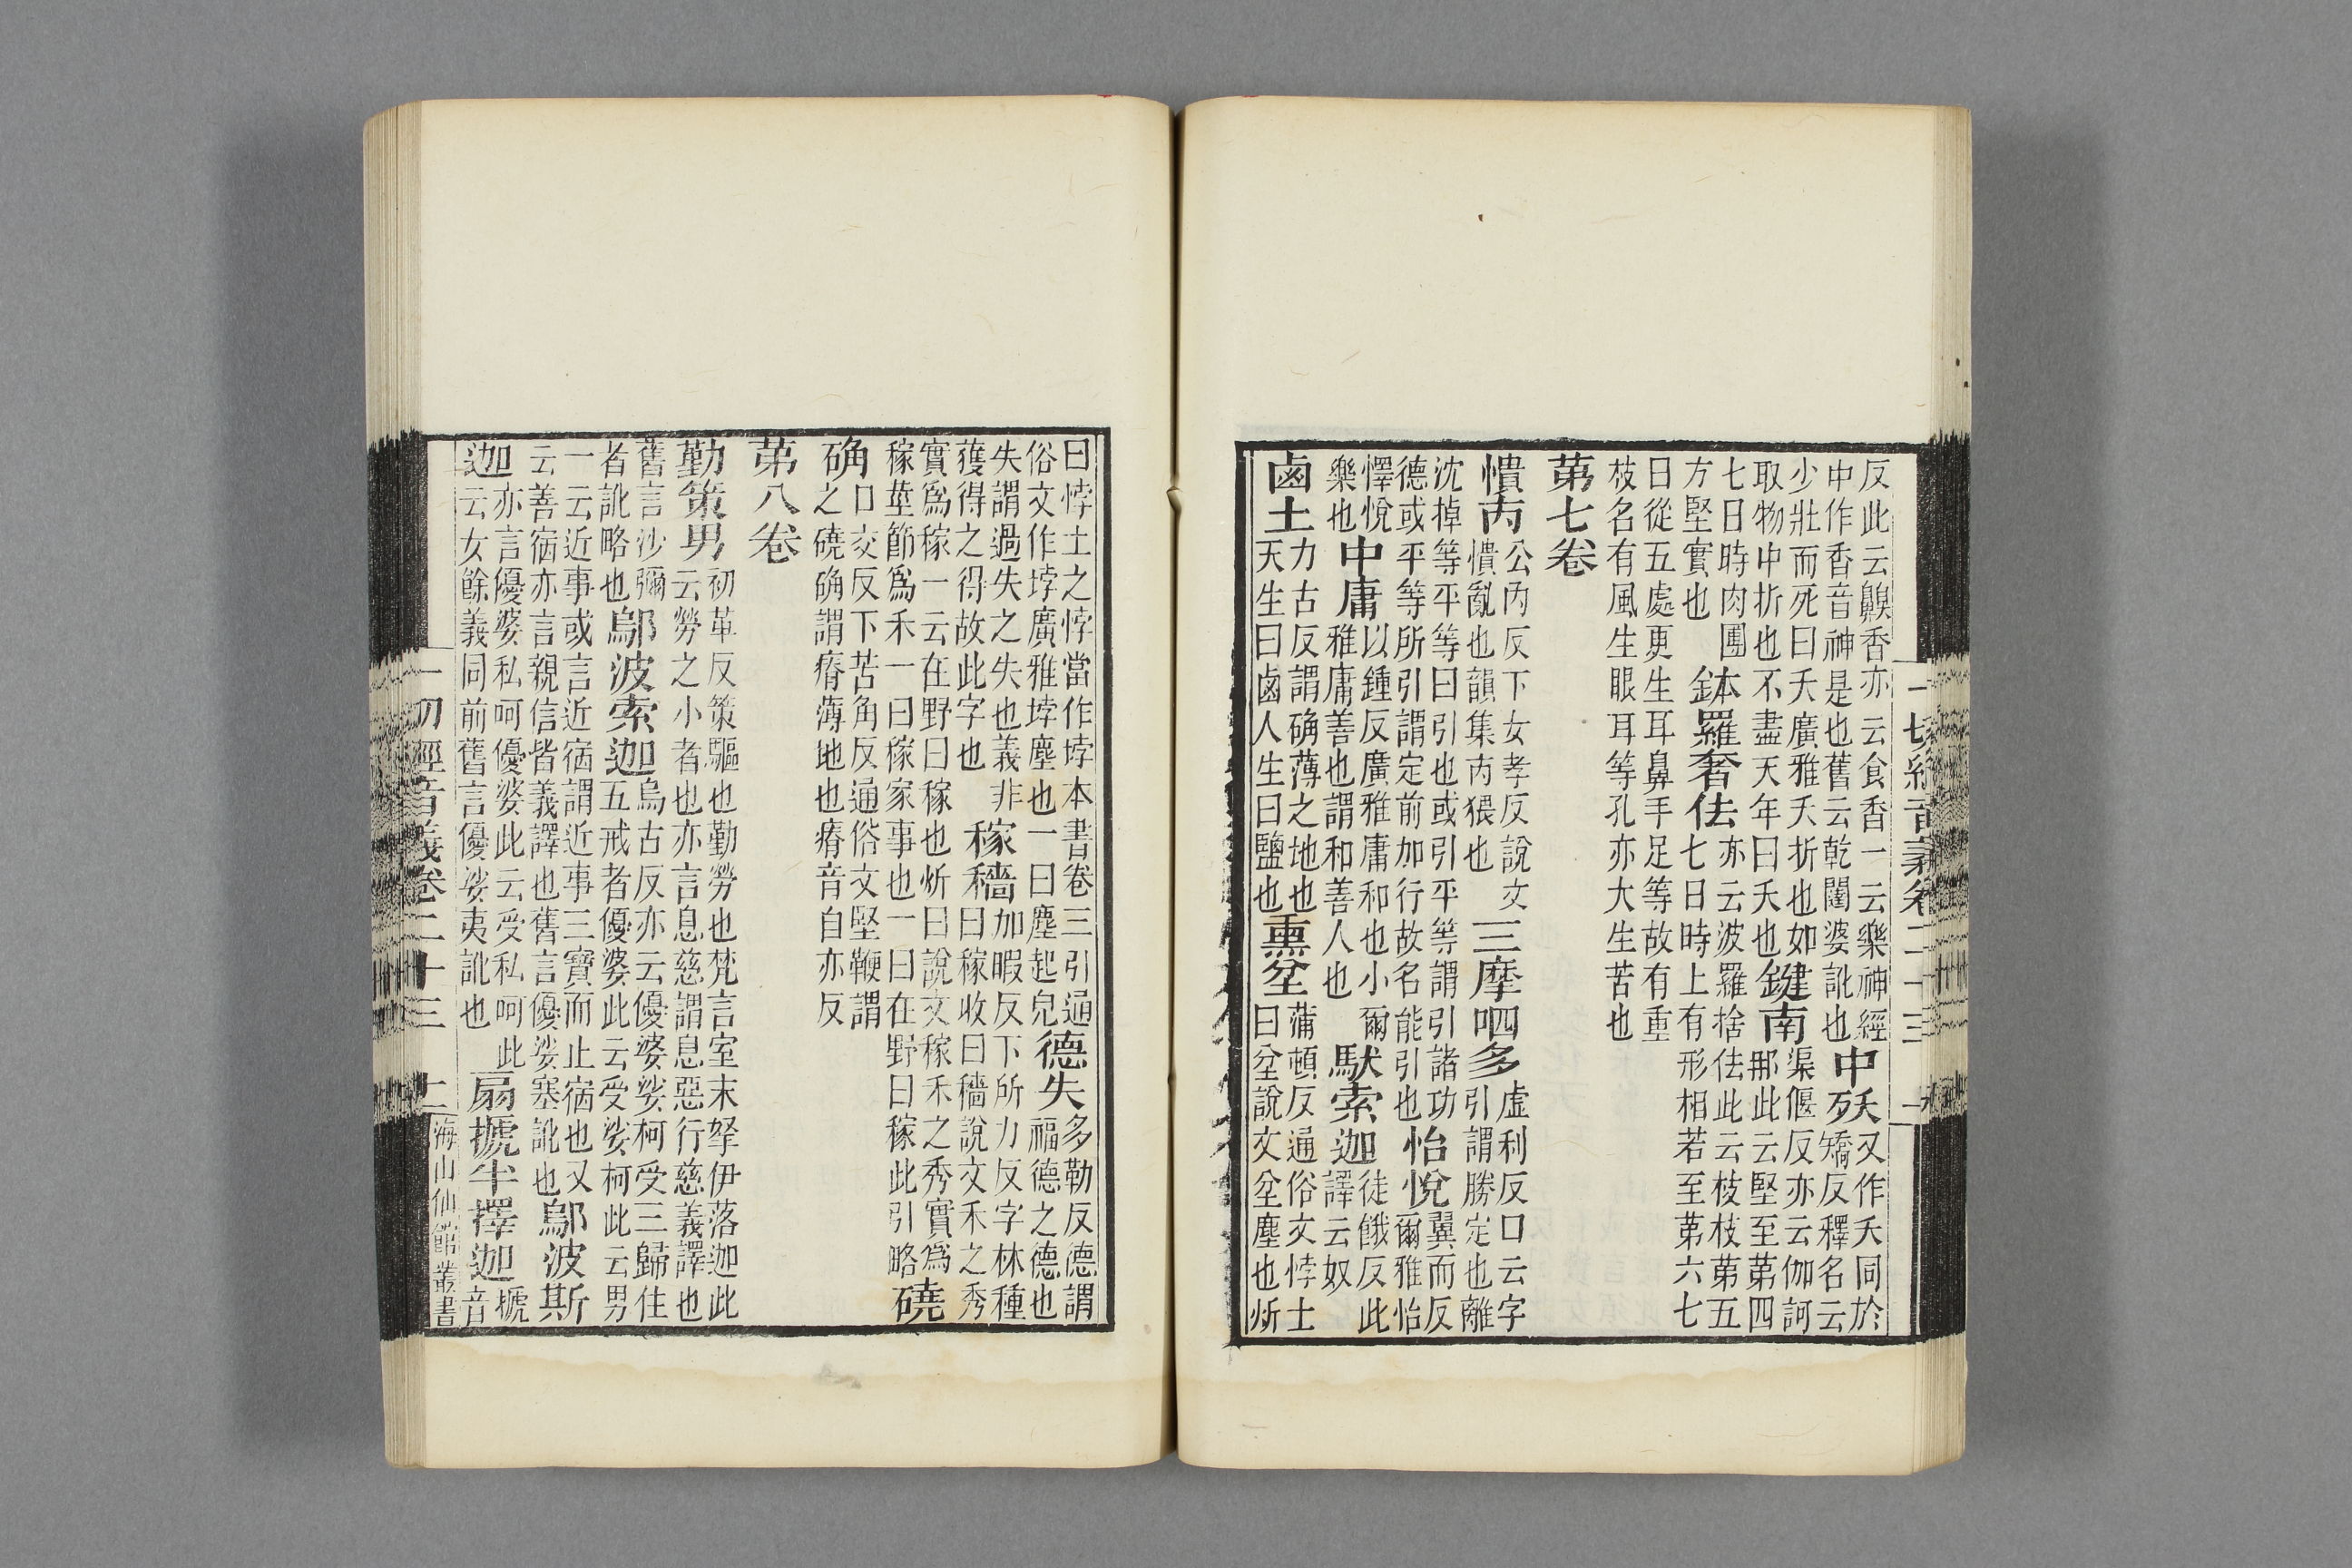 反此云齅香亦云食香一云樂神經
中作香音神是也舊云乾闥婆訛也中殀又作夭同於
少壯而死曰夭廣雅夭折也如鍵南渠偃反亦云伽訶
取物中折也不盡天年曰夭也
矯反釋名云
那此云堅至第四
七日時肉團鉢羅奢佉亦云波羅捨佉此云枝枝第五
方堅實也
七日時上有形相若至第六七
日從五處更生耳鼻手足等故有重
枝名有風生眼耳等孔亦大生苦也
第七卷
憒丙公內反下女孝反說文
憒亂也韻集丙猥也三摩呬多虛利反口云字
引謂勝定也離
沈掉等平等曰引也或引平等謂引諸功
德或平等所引謂定前加行故名能引也怡悅翼而反
爾雅怡
懌悅
樂也中庸以鍾反廣雅庸和也小爾
雅庸善也謂和善人也馱索迦徒餓反此
譯云奴
鹵土力古反謂确薄之地也
天生曰鹵人生曰鹽也熏坌蒲頓反通俗文悖土
曰坌說文坌塵也炘
曰悖土之悖當作埻本書卷三引通
俗文作埻廣雅埻塵也一曰塵起皃德失多勒反德謂
福德之德也
失謂過失之失也義非
獲得之得故此字也稼穡加暇反下所力反字林種
曰稼收曰穡說文禾之秀
實爲稼一云在野曰稼也炘曰說文稼禾之秀實爲
稼莖節爲禾一曰稼家事也一曰在野曰稼此引略磽
确口交反下苦角反通俗文堅鞕謂
之磽确謂瘠薄地也瘠音自亦反
第八卷
勤策男初革反策驅也勤勞也梵言室末拏伊落迦此
云勞之小者也亦言息慈謂息惡行慈義譯也
舊言沙彌
者訛略也鄔波索迦烏古反亦云優婆娑柯受三歸住
五戒者優婆此云受娑柯此云男
一云近事或言近宿謂近事三寶而止宿也又
云善宿亦言親信皆義譯也舊言優娑塞訛也鄔波斯
迦亦言優婆私呵優婆此云受私呵此
云女餘義同前舊言優娑夷訛也扇搋半擇迦搋
音
一切經音義卷二十三
海山仙館叢書